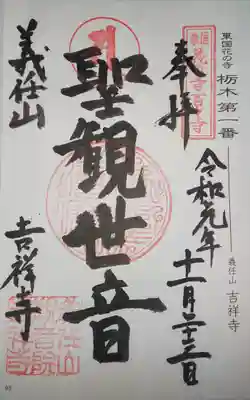 東国花の寺 栃木第一番
奉拝
令和元年
十一月二十三日
義任山 吉祥寺
聖観世音
義任山
吉祥寺